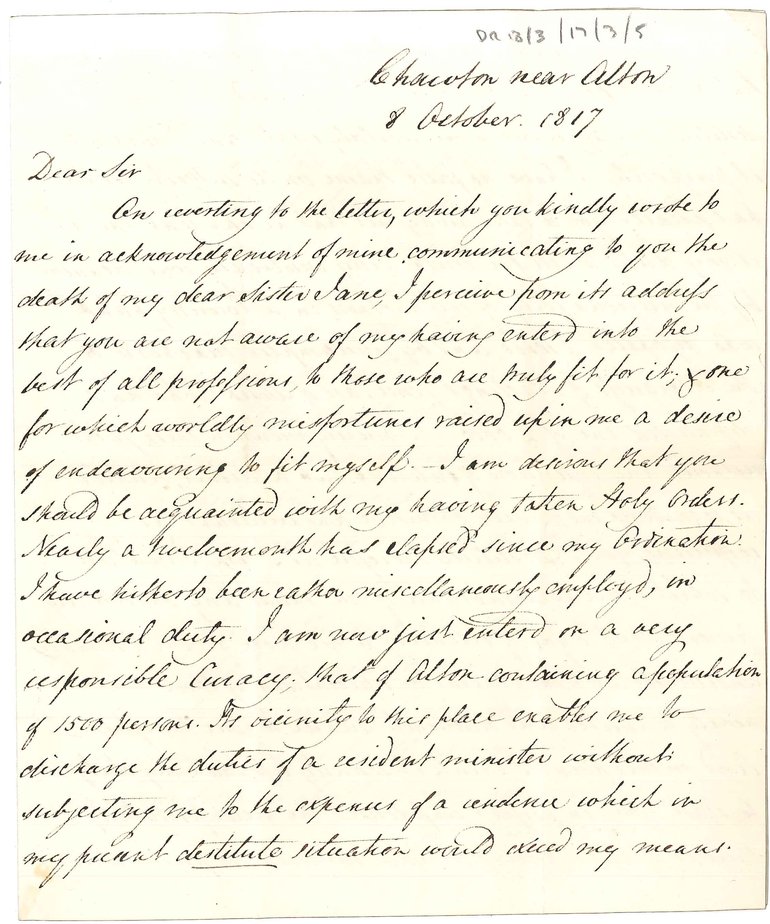 DR 18/3/17/3/5
Chawton near Alton
8 October. 1817
Dear Sir
On reverting to the letter, which you kindly wrote to
me in acknowledgement of mine communicating to you the
death of my dear Sister Jane, I perceive from its address
that you are not aware of my having enterd into the
best of all professions, to those who are truly fit for it; & one
for which worldly misfortunes raised up in me a desire
of endeavouring to fit myself. – I am desirous that you
should be acquainted with my having taken Holy Orders.
Nearly a twelvemonth has elapsed since my Ordination.
I have hitherto been rather miscellaneously employd, in
occasional duty. I am now just enterd on a very
responsible Curacy, that of Alton containing a population
of 1500 persons. Its vicinity to this place enables me to
discharge the duties of a resident minister without
subjecting me to the expenses of a residence which in
my present destitute situation would exceed my means.